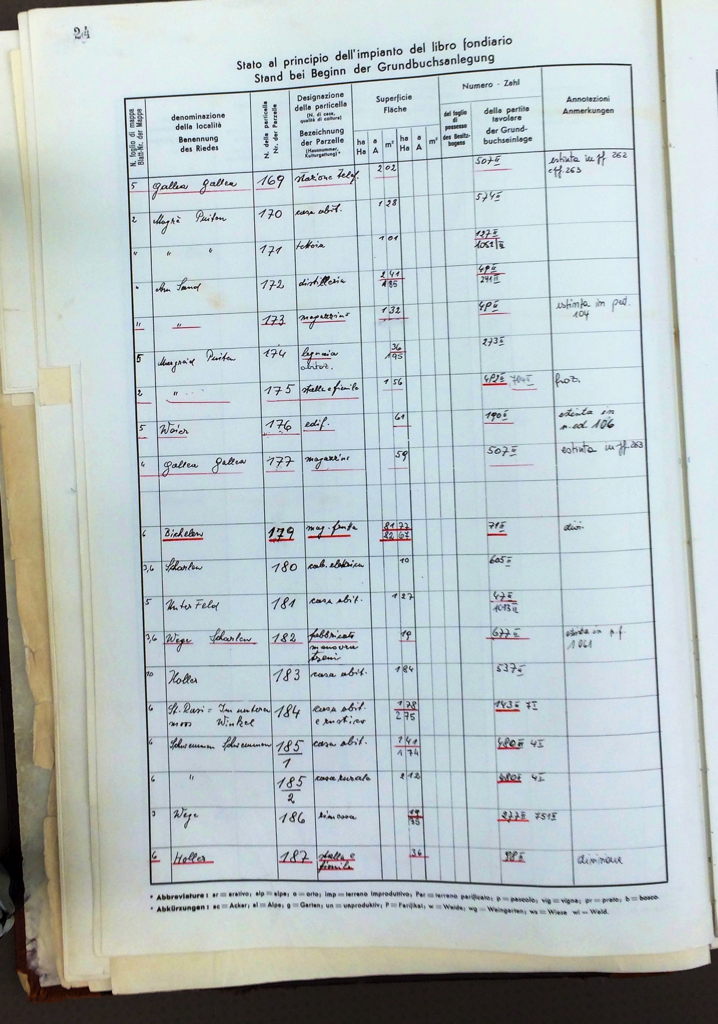 24
Stato al principio dell'impianto del libro fondiario
Stand bei Beginn der Grundbuchsanlegung
N. foglio di mappa
Blatt-Nr. der Mappe
denominazione
della località
Benennung
des Riedes
N. della particella
Nr. der Parzelle
Designazione
della particella
(N. di casa,
qualità di coltura)
Bezeichnung
der Parzelle
(Hausnummer,
Kulturgattung)*
Superficie
Fläche
ha a m² ha a m²
Ha A Ha A
Numero - Zahl
del foglio di possesso
des Besitzbogens
della partita
tavolare
der Grund-
buchseinlage
Annotazioni
Anmerkungen
5 Gallea Gallea 169 stazione telef. 2 02 507 II estinta in pf. 262
e pf. 263
2 170 casa abit. 1 28 574 II
" " " 171 tettoia 1 01 127 II
1052/II
" 172 distilleria 2 41 49 II
241 II
" " 173 magazzino 1 32 49 II estinta in
104
5 174 legnaia 36 273 II
1 45
2 " 175 stalla e fienile 1 56
5 Waier 176 edif. 61 190 II estinta in
p. ed. 106
4 Gallea Gallea 177 magazzino 59 507 II estinta in pf. 263
6 179 mag. frutta 81 77 71 II
82 67
3,6 Scharlen 180 cab. elettrica 10 605 II
5 Unter Feld 181 casa abit. 1 27 47 II
1013 II
3,6 Wege Scharlen 182 fabbricato 19 677 II estinta in p.f.
manovra 1061
treni
10 Holler 183 casa abit. 1 84 537 II
6 Im unteren 184 casa abit. 1 78 143 II 7 I
moos Winkel e rustico 2 75
6 Schwemmen Schwemmen 185/1 casa abit. 1 41 480 II 4 I
1 74
6 " 185/2 casa rurale 2 12 480 II 4 I
3 Wege 186 rimessa 19 277 II 751 II
35
6 Holler 187 stalla e 36 98 II divisione
fienile
* Abbreviature: ar = arativo; alp = alpe; o = orto; imp = terreno improduttivo; Par = terreno parificato; p = pascolo; vig = vigna; pr = prato; b = bosco.
* Abkürzungen: ac = Acker; al = Alpe; g = Garten; un = unproduktiv; P = Parifikat; w = Weide; wg = Weingarten; ws = Wiese wl = Wald.